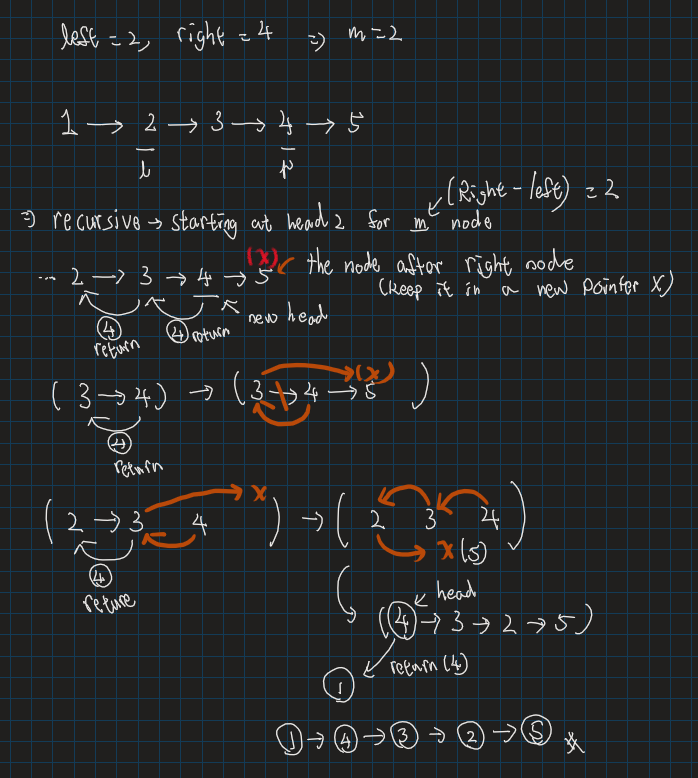 left = 2, right = 4 => m = 2
1 → 2 → 3 → 4 → 5
l r
(Right - left) = 2
=> recursive → starting at head 2 for m node
(X) the node after right node
... 2 → 3 → 4 → 5 (keep it in a new pointer X)
④ ④ return new head
return
(3 → 4) → (3 → 4 → 5 (X))
④
return
(2 → 3 4 X) → (2 3 4
X (5))
④
return
head
(④ → 3 → 2 → 5)
return (4)
①
① → ④ → ③ → ② → ⑤